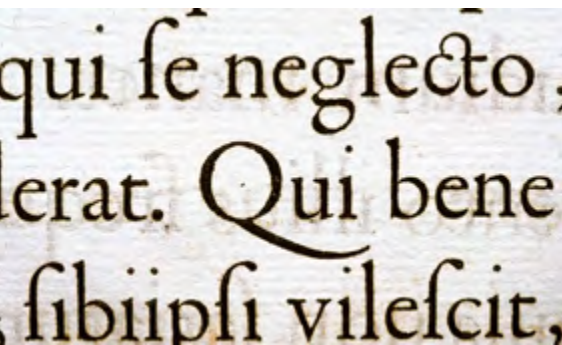 qui ſe neglecto,
derat. Qui bene
ſibiipſi vileſcit,